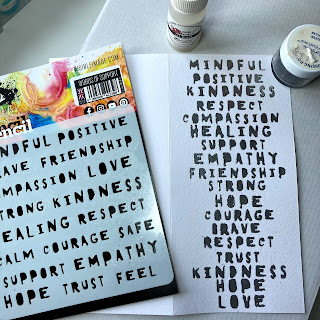 WORDS OF SUPPORT
MINDFUL POSITIVE
BRAVE FRIENDSHIP
COMPASSION LOVE
STRONG KINDNESS
HEALING RESPECT
CALM COURAGE SAFE
SUPPORT EMPATHY
HOPE TRUST FEEL
MINDFUL
POSITIVE
KINDNESS
RESPECT
COMPASSION
HEALING
SUPPORT
EMPATHY
FRIENDSHIP
STRONG
HOPE
COURAGE
BRAVE
RESPECT
TRUST
KINDNESS
HOPE
LOVE